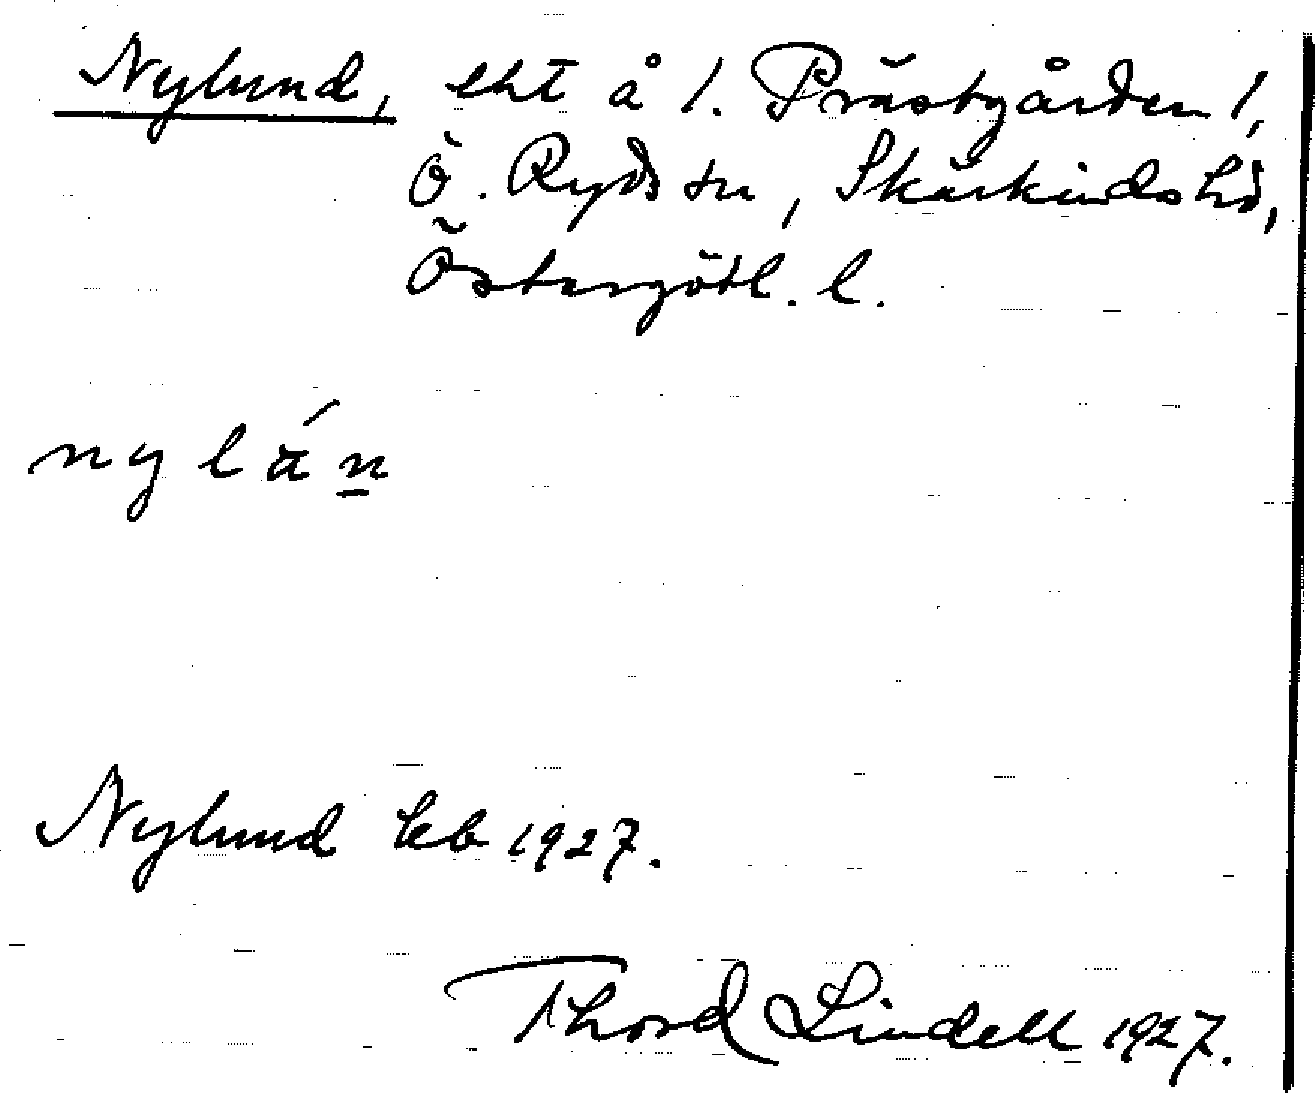 Nylund, lht å 1. Prästgården 1,
Ö. Ryds sn, Skärkinds hd,
Östergötl. l.
nylán
Nylund kb 1927.
Thord Lindell 1927.